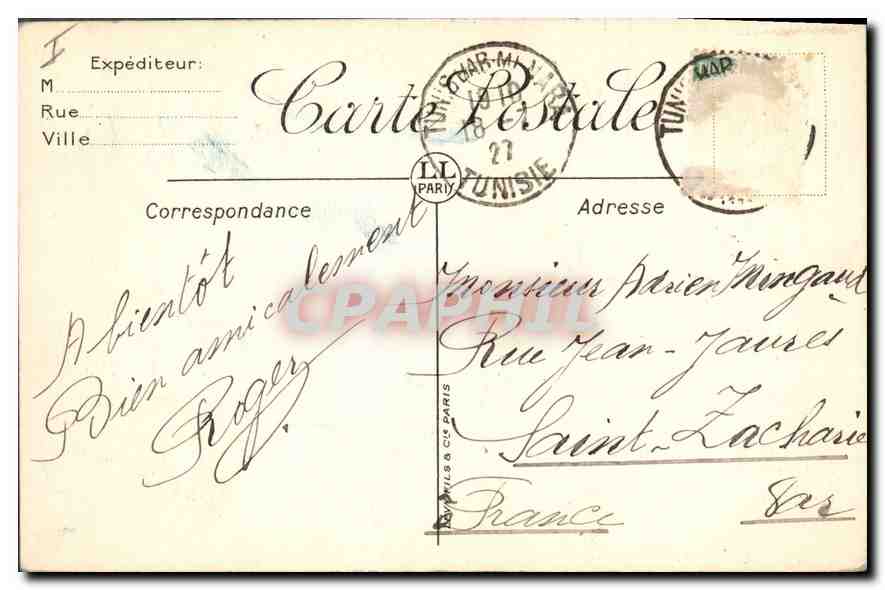 I
Expéditeur:
M
Rue
Ville
Carte Postale
TUNIS
18
27
TUNISIE
MAR
TUNIS
LL
PARIS
Correspondance
Adresse
A bientôt
Bien amicalement
Roger
CPAPHIL
Monsieur Adrien Mingaud
Rue Jean-Jaures
Saint-Zacharie
Var
France
LEVY FILS & Cie PARIS